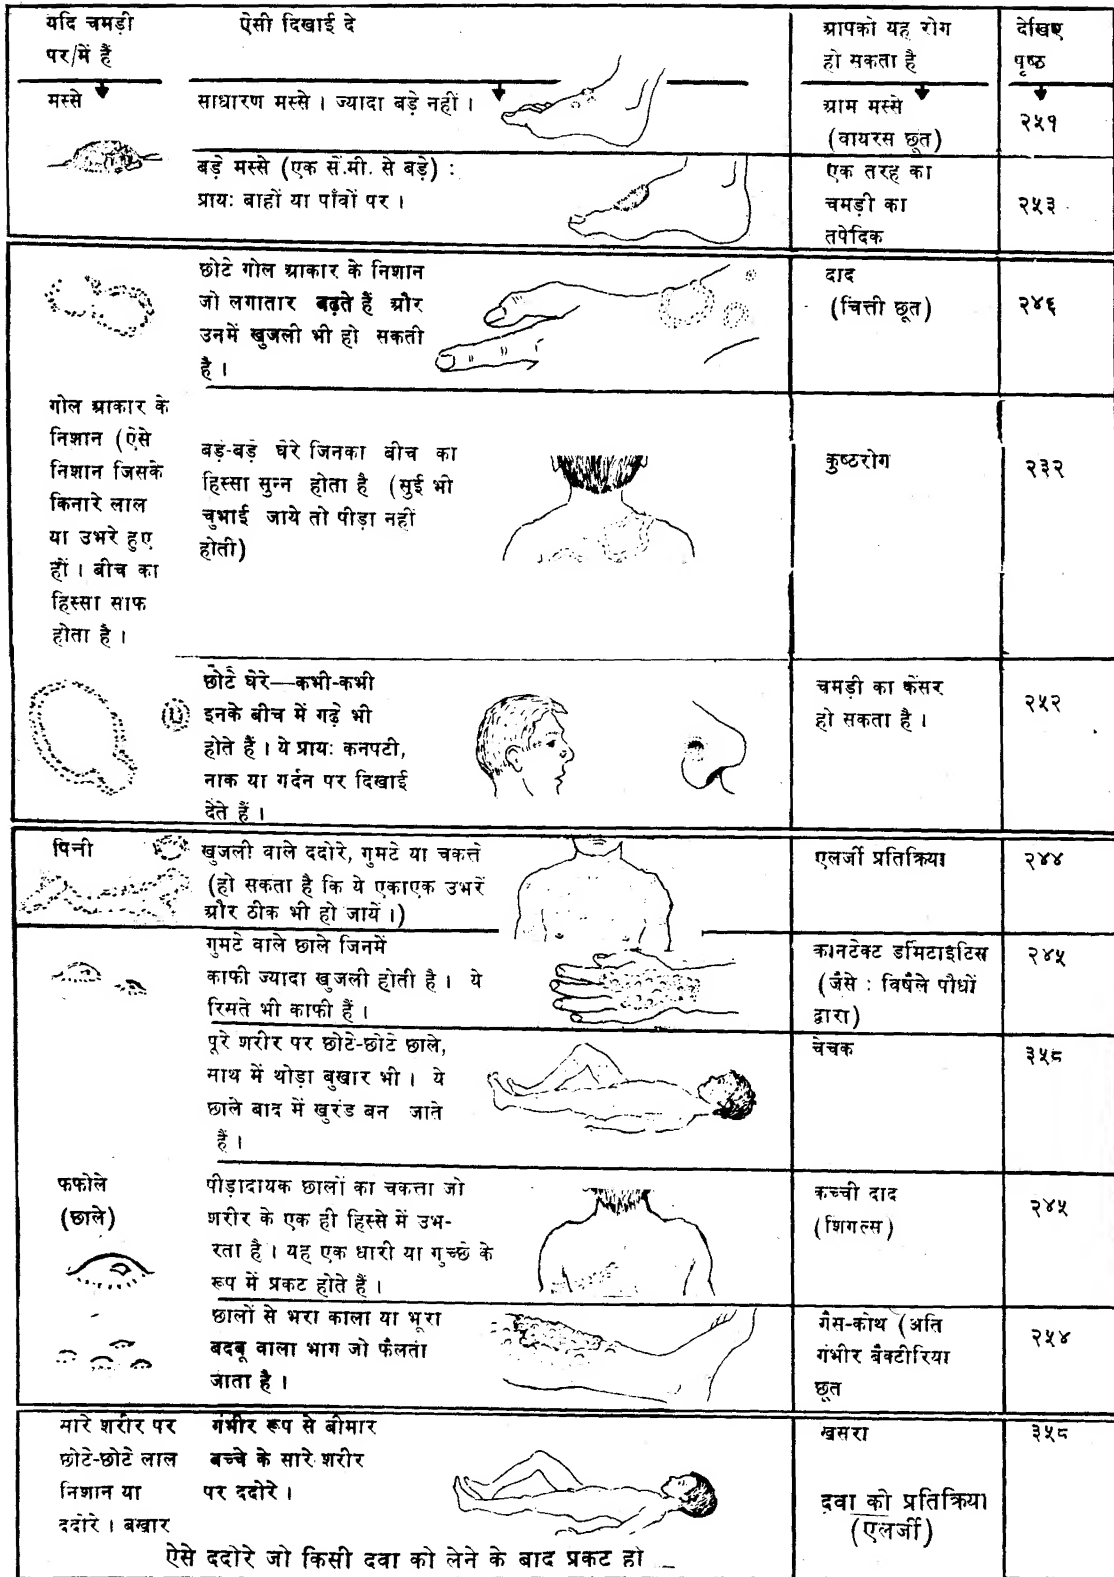 यदि चमड़ी
पर/में हैं
ऐसी दिखाई दे
आपको यह रोग
हो सकता है
देखिए
पृष्ठ
मस्से
साधारण मस्से । ज्यादा बड़े नहीं ।
आम मस्से
(वायरस छूत)
२५१
बड़े मस्से (एक सें.मी. से बड़े) :
प्रायः बाहों या पाँवों पर ।
एक तरह का
चमड़ी का
तपेदिक
२५३
छोटे गोल आकार के निशान
जो लगातार बढ़ते हैं और
उनमें खुजली भी हो सकती
है ।
दाद
(चित्ती छूत)
२४६
गोल आकार के
निशान (ऐसे
निशान जिसके
किनारे लाल
या उभरे हुए
हों । बीच का
हिस्सा साफ
होता है ।
बड़े-बड़े घेरे जिनका बीच का
हिस्सा सुन्न होता है (सुई भी
चुभाई जाये तो पीड़ा नहीं
होती)
कुष्ठरोग
२३२
छोटे घेरे—कभी-कभी
इनके बीच में गढ़े भी
होते हैं । ये प्रायः कनपटी,
नाक या गर्दन पर दिखाई
देते हैं ।
चमड़ी का केंसर
हो सकता है ।
२५२
पित्ती
खुजली वाले ददोरे, गुमटे या चकत्ते
(हो सकता है कि ये एकाएक उभरें
और ठीक भी हो जायें ।)
एलर्जी प्रतिक्रिया
२४४
गुमटे वाले छाले जिनमें
काफी ज्यादा खुजली होती है । ये
रिसते भी काफी हैं ।
कानटेक्ट डर्मिटाइटिस
(जैसे : विषैले पौधों
द्वारा)
२४५
पूरे शरीर पर छोटे-छोटे छाले,
साथ में थोड़ा बुखार भी । ये
छाले बाद में खुरंड बन जाते
हैं ।
चेचक
३५८
फफोले
(छाले)
पीड़ादायक छालों का चकत्ता जो
शरीर के एक ही हिस्से में उभ-
रता है । यह एक धारी या गुच्छे के
रूप में प्रकट होते हैं ।
कच्ची दाद
(शिंगल्स)
२४५
छालों से भरा काला या भूरा
बदबू वाला भाग जो फैलता
जाता है ।
गैस-कोथ (अति
गंभीर बैक्टीरिया
छूत
२५४
सारे शरीर पर
छोटे-छोटे लाल
निशान या
ददोरे । बखार
गंभीर रूप से बीमार
बच्चे के सारे शरीर
पर ददोरे ।
खसरा
३५८
ऐसे ददोरे जो किसी दवा को लेने के बाद प्रकट हो
दवा की प्रतिक्रिया
(एलर्जी)